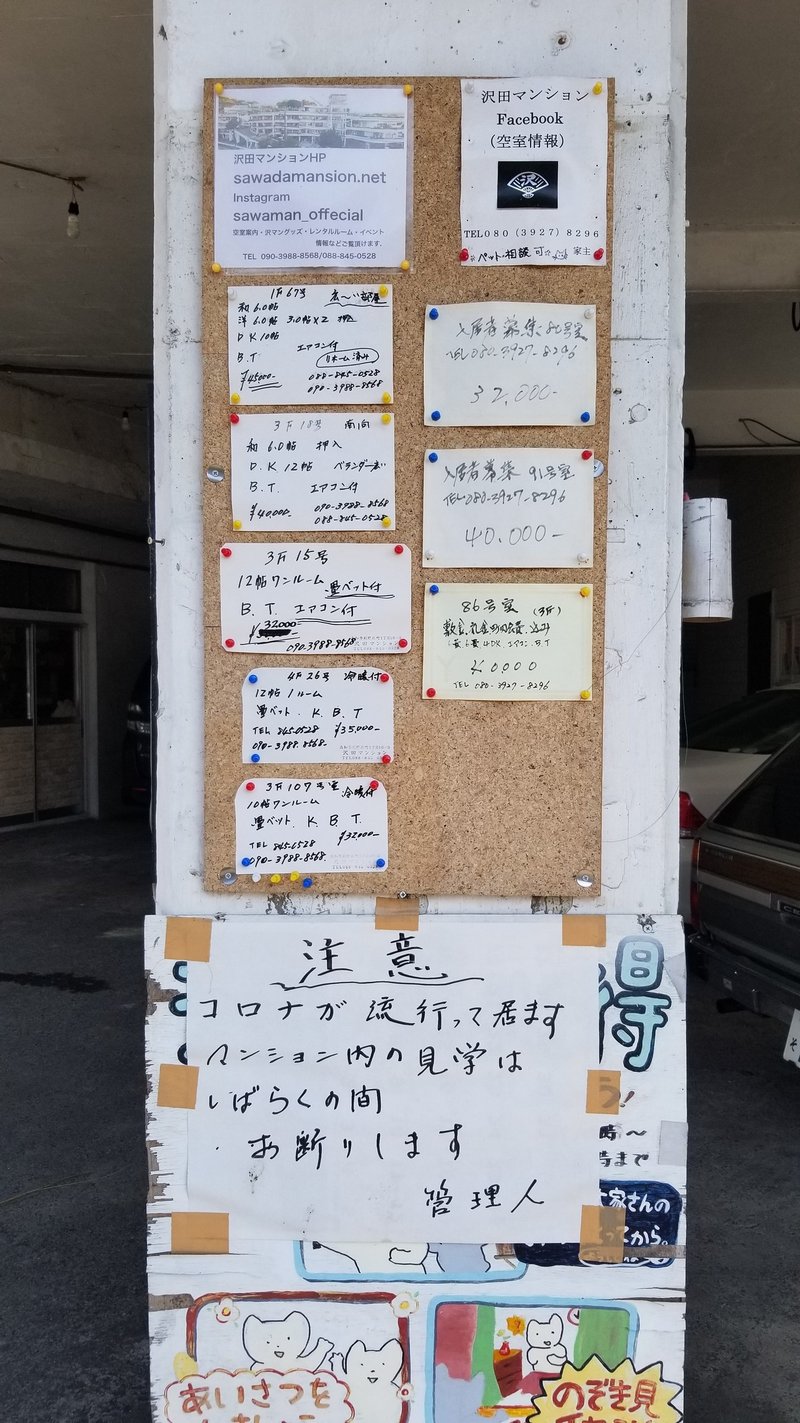 沢田マンションHP
sawadamansion.net
Instagram
sawaman_offecial
空室案内・沢マングッズ・レンタルルーム・イベント
情報などご覧頂けます。
TEL 090-3988-8568/088-845-0528
沢田マンション
Facebook
(空室情報)
沢
TEL080(3927)8296
ペット・相談 可 家主
1F 67号 広〜い部屋
和 6.0帖
洋 6.0帖 3.0帖×2 押込
DK 10帖
B.T エアコン付
リホーム済み
¥45000- 088-845-0528
090-3988-8568
3F 18号 南向
和 6.0帖 押入
D.K 12帖 ベランダー
B.T. エアコン付
¥40,000- 090-3988-8568
088-845-0528
3F 15号
12帖ワンルーム 畳ベット付
B.T. エアコン付
32000-
090.3988-8568
沢田マンション
4F 26号 冷暖付
12帖 1ルーム
畳ベット. K. B. T
TEL 845-0528 ¥35,000-
090-3988.8568-
沢田マンション
3F 107号室 冷暖付
10帖ワンルーム
畳ベット K. B. T.
¥32000-
TEL 845-0528
090-3988-8568.
入居者募集 86号室
TEL080-3927-8296
32,000-
入居者募集 91号室
TEL080-3927-8296
40.000-
86号室 (3F)
敷金.礼金
エアコン.B.T
0,000
TEL 080-3927-8296
注意
コロナが流行って居ます
マンション内の見学は
しばらくの間
・お断りします
管理人
得
う!
時〜
時まで
家さんの
ってから。
あいさつを
のぞき見